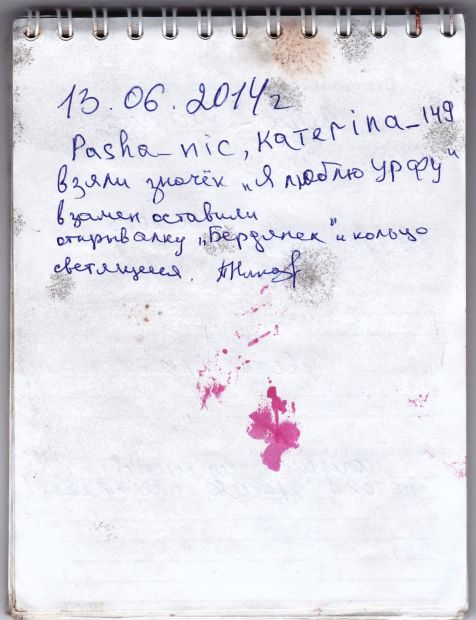 13.06.2014г
Pasha_nic, Katerina_149
взяли значёк „Я люблю УРФУ"
взамен оставили
открывалку „Бердянск" и кольцо
светящееся.